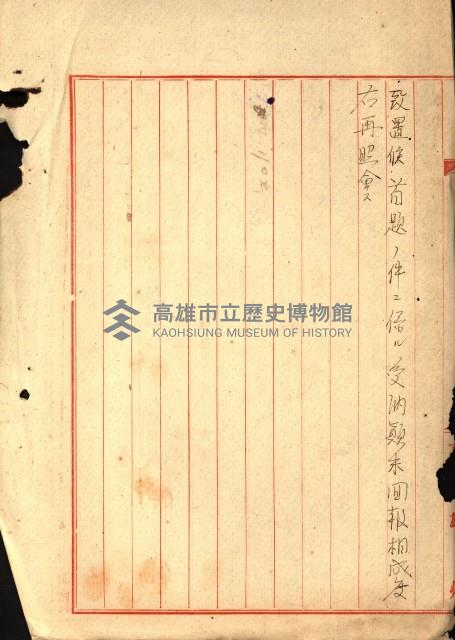 致置候首題ノ件ニ係ル受納顛末回報相成度
右再照會ス
高雄市立歷史博物館
KAOHSIUNG MUSEUM OF HISTORY